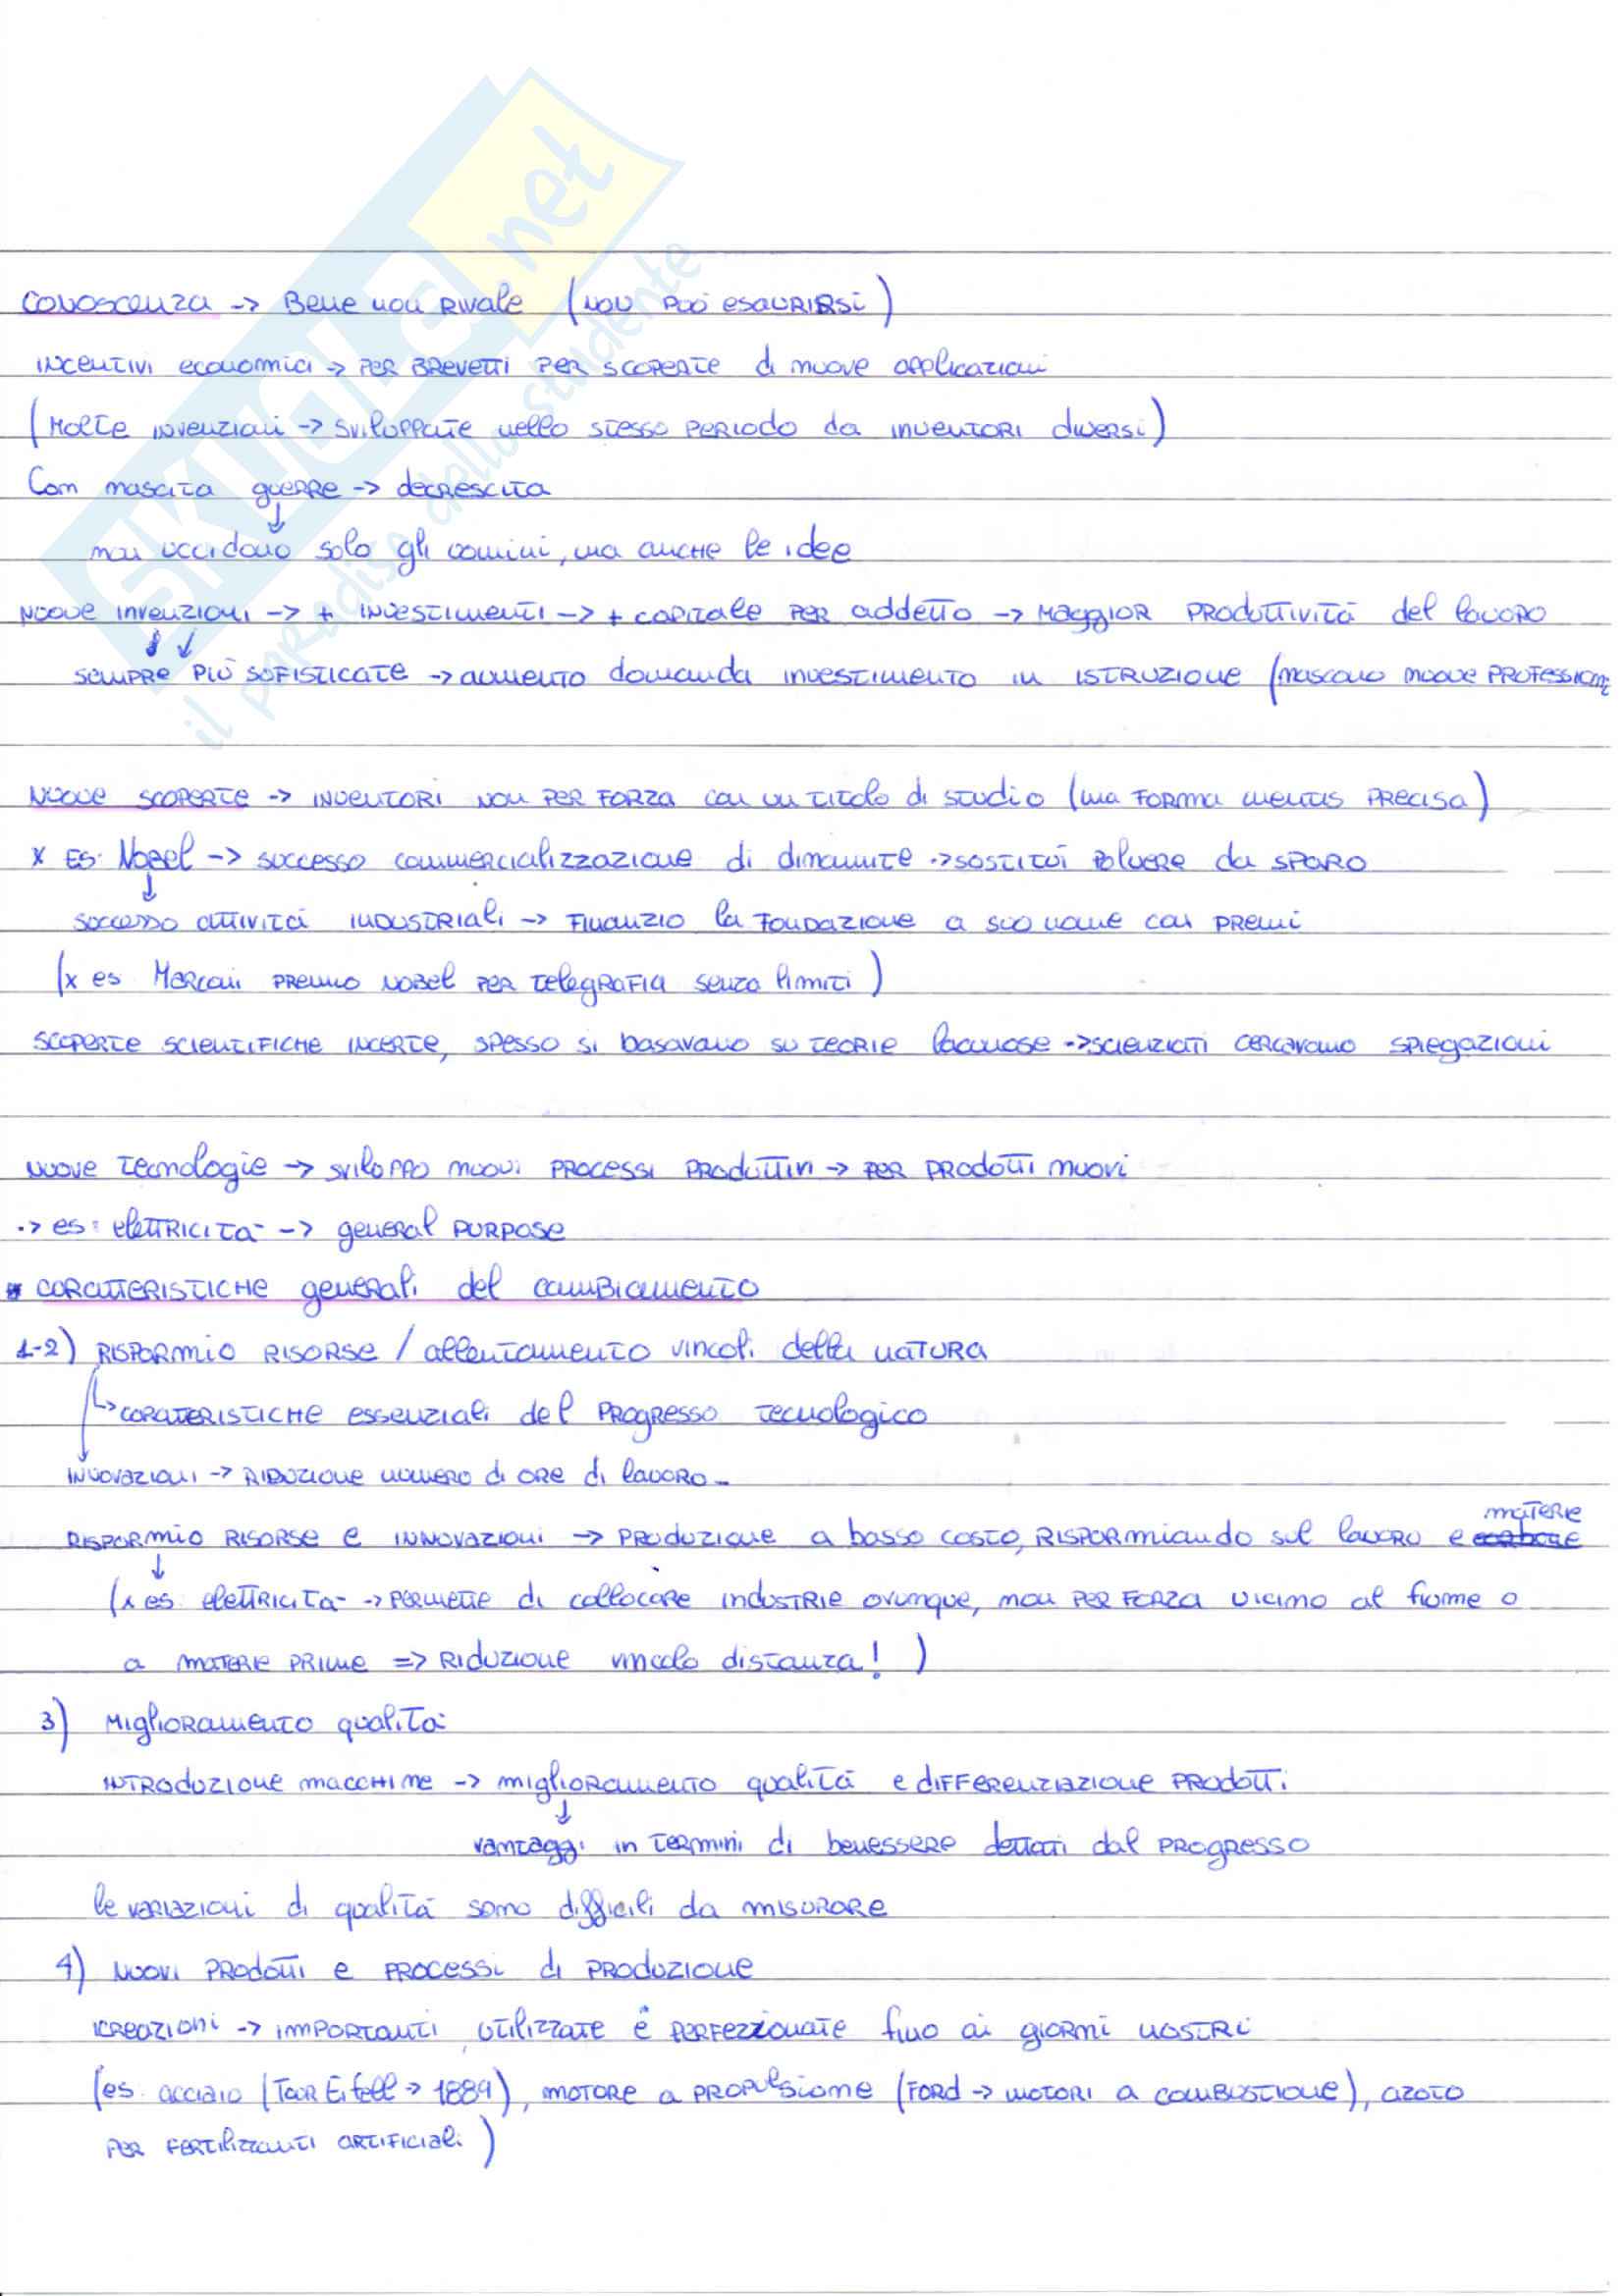 SKUOLA.net
il paradiso dello studente
CONOSCENZA -> Bene non RIVALE (NON PUÒ ESAURIRSI)
INCENTIVI economici -> PER BREVETTI PER SCOPERTE di nuove applicazioni
(Molte invenzioni -> sviluppate nello stesso periodo da INVENTORI diversi)
Con nascita guerre -> decrescita
↓
non uccidono solo gli uomini, ma anche le idee
NUOVE invenzioni -> + INVESTIMENTI -> + CAPITALE PER addetto -> MAGGIOR PRODUTTIVITÀ del lavoro
↓ ↓
SEMPRE PIÙ SOFISTICATE -> aumento domanda investimento in ISTRUZIONE (nascono nuove PROFESSIONI
NUOVE SCOPERTE -> INVENTORI NON PER FORZA con un titolo di studio (ma FORMA mentis PRECISA)
x ES: Nobel -> successo commercializzazione di dinamite -> sostituì polvere da SPARO
↓
successo attività INDUSTRIALI -> FINANZIO la FONDAZIONE a suo nome con PREMI
(x es Marconi PREMIO NOBEL PER TELEGRAFIA senza limiti)
SCOPERTE SCIENTIFICHE INCERTE, SPESSO si basavano su TEORIE lacunose -> scienziati cercavano SPIEGAZIONI
NUOVE Tecnologie -> sviluppo nuovi PROCESSI PRODUTTIVI -> PER PRODOTTI nuovi
-> es: elettricità -> general PURPOSE
CARATTERISTICHE generali del cambiamento
1-2) RISPARMIO RISORSE / allentamento vincoli della NATURA
↳ CARATTERISTICHE essenziali del PROGRESSO Tecnologico
INNOVAZIONI -> RIDUZIONE numero di ORE di lavoro
materie
RISPARMIO RISORSE e INNOVAZIONI -> PRODUZIONE a basso costo, RISPARMIANDO sul lavoro e carbone
↓
(x es: elettricità -> permette di collocare industrie ovunque, non PER FORZA vicino al fiume o
a MATERIE PRIME => RIDUZIONE vincolo distanza! )
3) Miglioramento qualità
INTRODUZIONE macchine -> miglioramento qualità e DIFFERENZIAZIONE PRODOTTI
↓
vantaggi in termini di benessere dettati dal PROGRESSO
le variazioni di qualità sono difficili da misurare
4) NUOVI PRODOTTI e PROCESSI di PRODUZIONE
creazioni -> IMPORTANTI, utilizzate e PERFEZIONATE fino ai giorni nostri
(es. acciaio (Tour Eifell -> 1889), MOTORE a PROPULSIONE (FORD -> MOTORI a COMBUSTIONE), azoto
PER FERTILIZZANTI ARTIFICIALI)